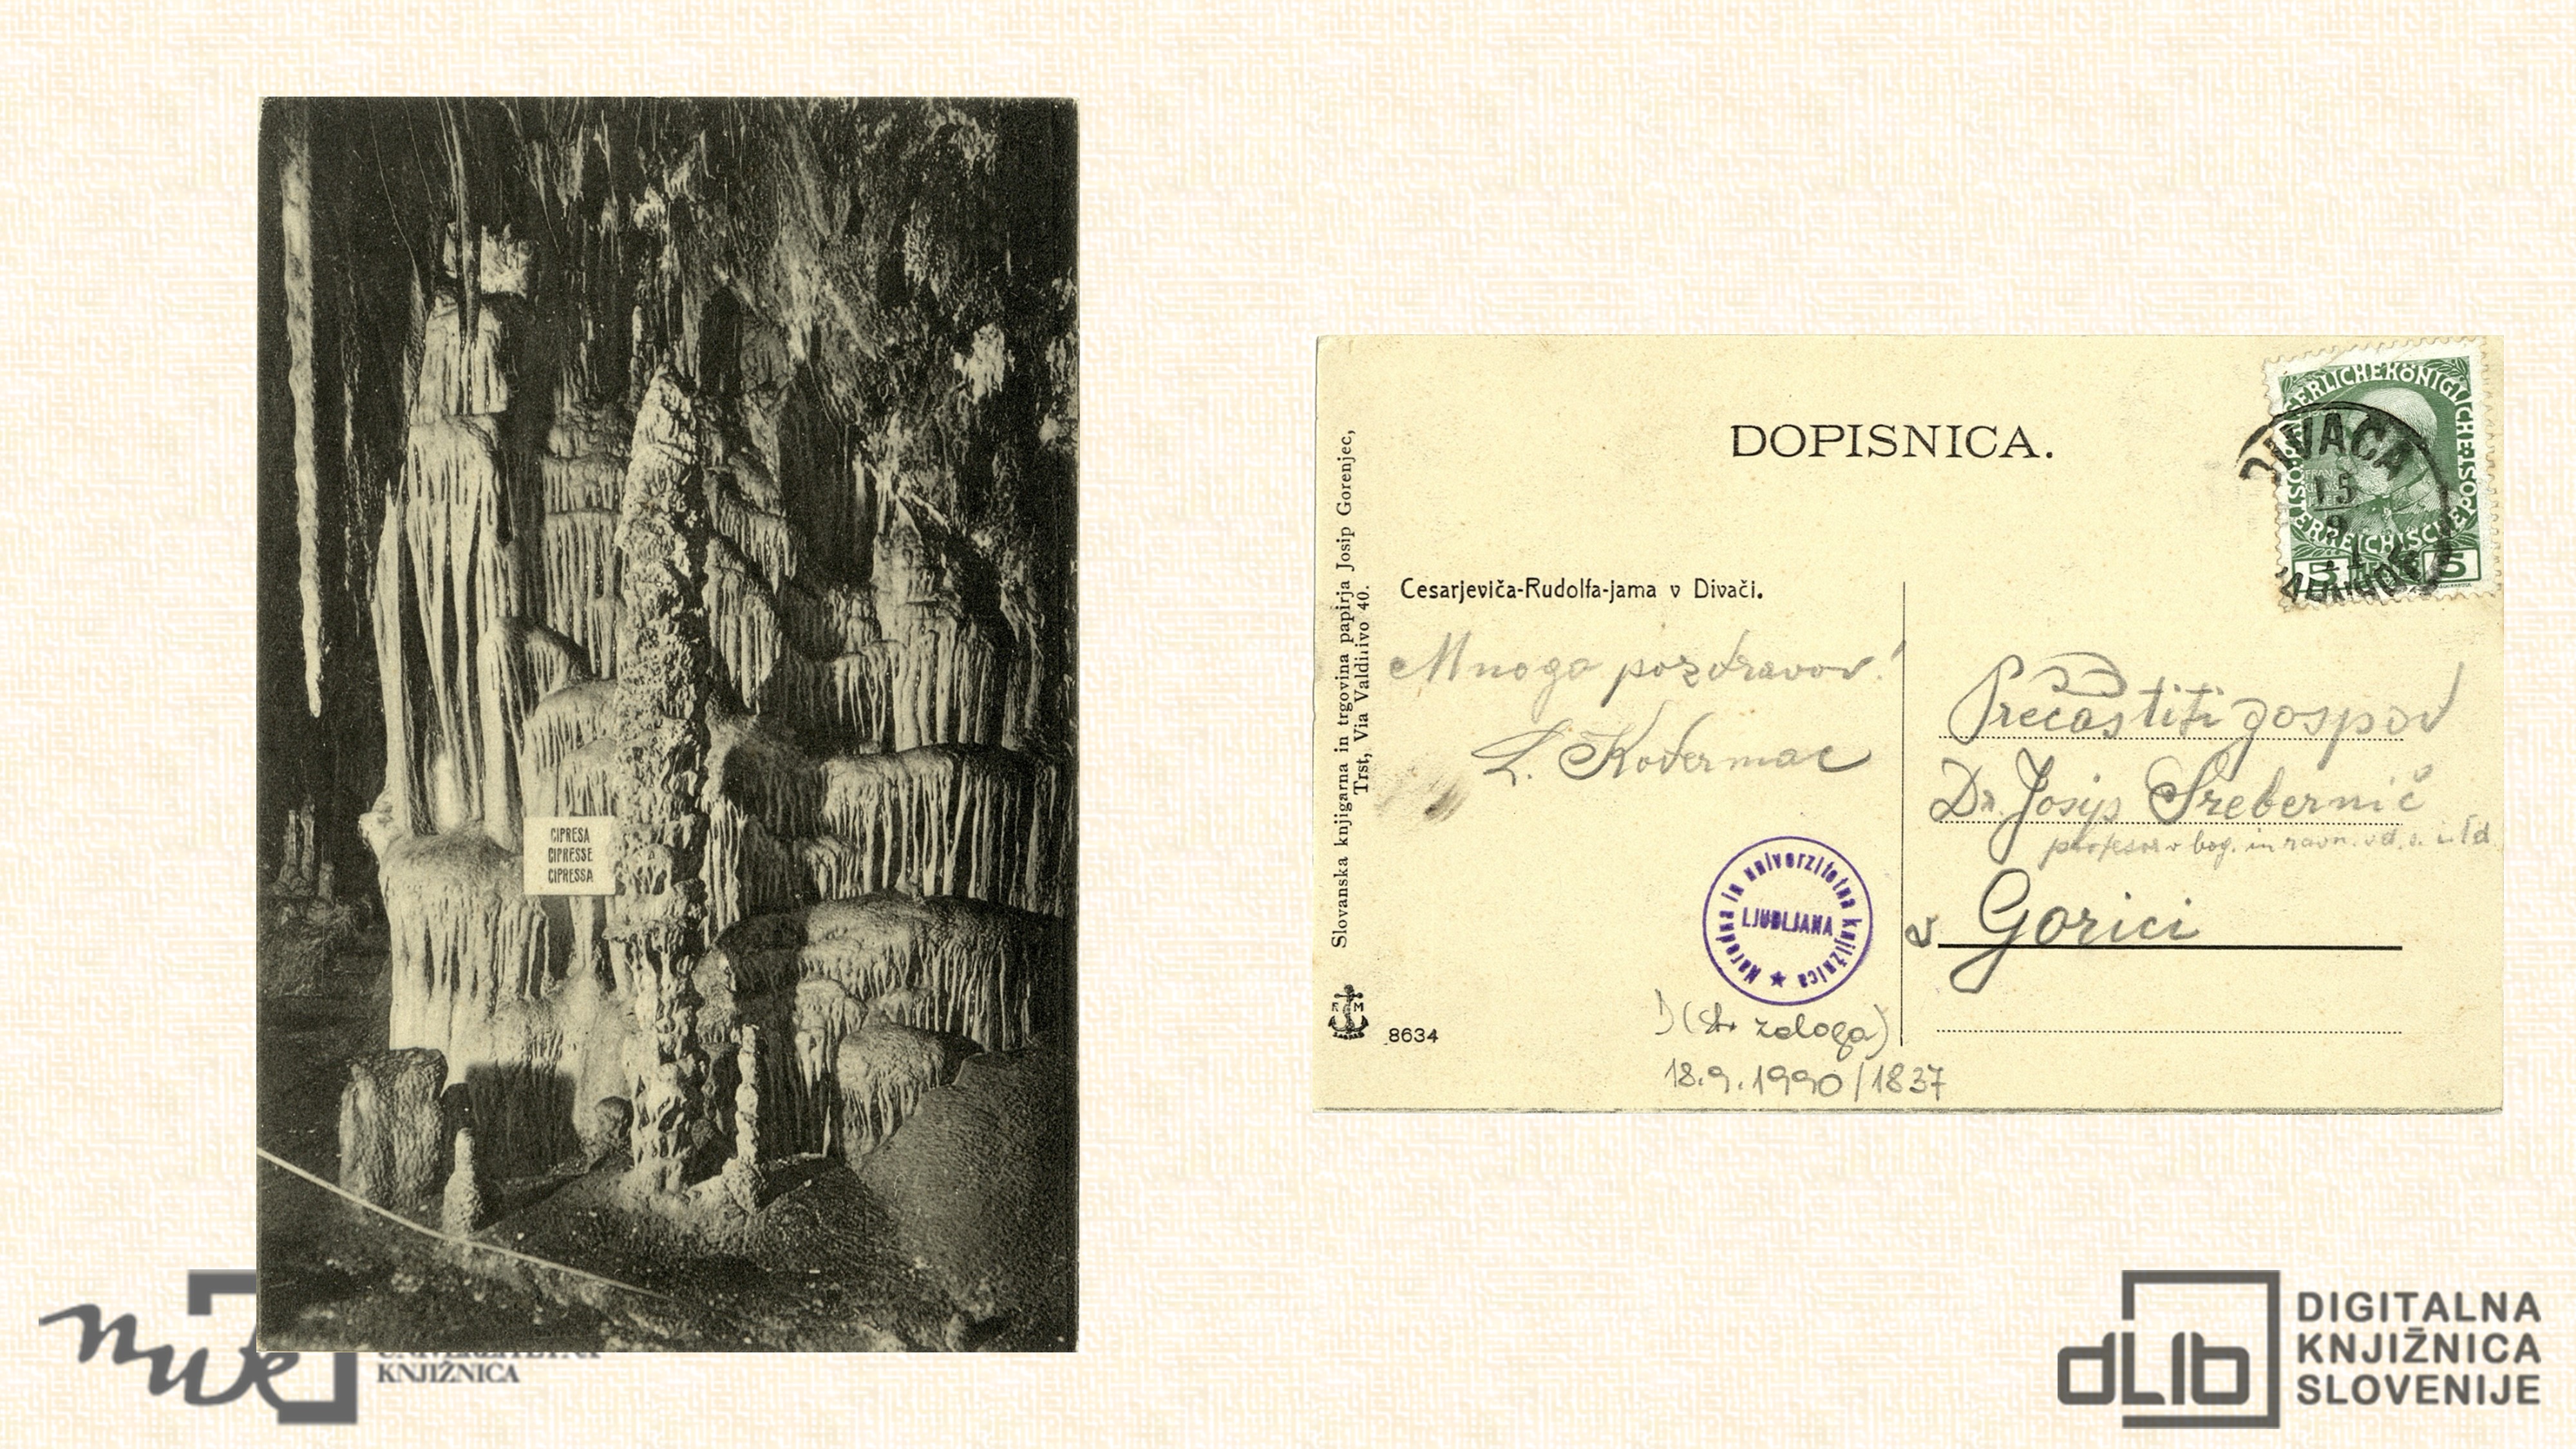 CIPRESA
CIPRESSE
CIPRESSA
KNJIŽNICA
DOPISNICA.
Slovanska knjigarna in trgovina papirja Josip Gorenjec,
Trst, Via Valdirivo 40.
Cesarjeviča-Rudolfa-jama v Divači.
Mnogo pozdravov!
L. Kodermac
ÖSTERREICHISCHE POST
5 5
DIVAČA
15
Prečastiti gospod
Dr. Josip Srebernič
profesor v bog. in ravn.
v Gorici
Narodna in univerzitetna knjižnica
LJUBLJANA
8634
D (st. zaloga)
18.9.1990/1837
nuk
dLib
DIGITALNA
KNJIŽNICA
SLOVENIJE